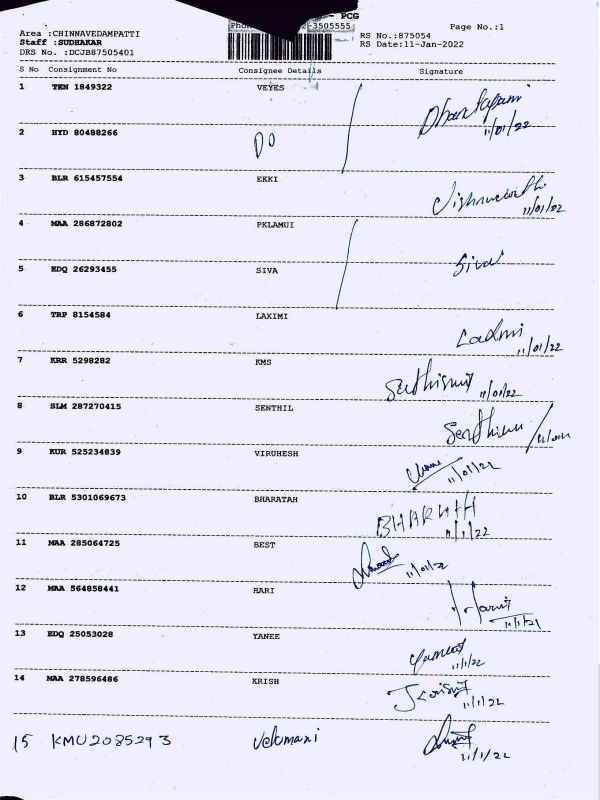 PCG
Phone 2-3505555
Area :CHINNAVEDAMPATTI
Staff :SUDHAKAR
DRS No. :DCJB87505401
RS No.:875054
RS Date:11-Jan-2022
Page No.:1
S No Consignment No Consignee Details Signature
1 TEN 1849322 VEYES
11/01/22
2 HYD 80488266 DO
3 BLR 615457554 EKKI
11/01/22
4 MAA 286872802 PKLAMUI
5 EDQ 26293455 SIVA Siva
6 TRP 8154584 LAXIMI
11/01/22
7 KRR 5298282 KMS
11/01/22
8 SLM 287270415 SENTHIL
9 KUR 525234839 VIRUHESH
11/01/22
10 BLR 5301069673 BHARATAH BHARATH
11/1/22
11 MAA 285064725 BEST
11/01/22
12 MAA 564858441 HARI
13 EDQ 25053028 YANEE
11/1/22
14 MAA 278596486 KRISH
11/1/22
15 KMU2085293 Velumani
11/1/22